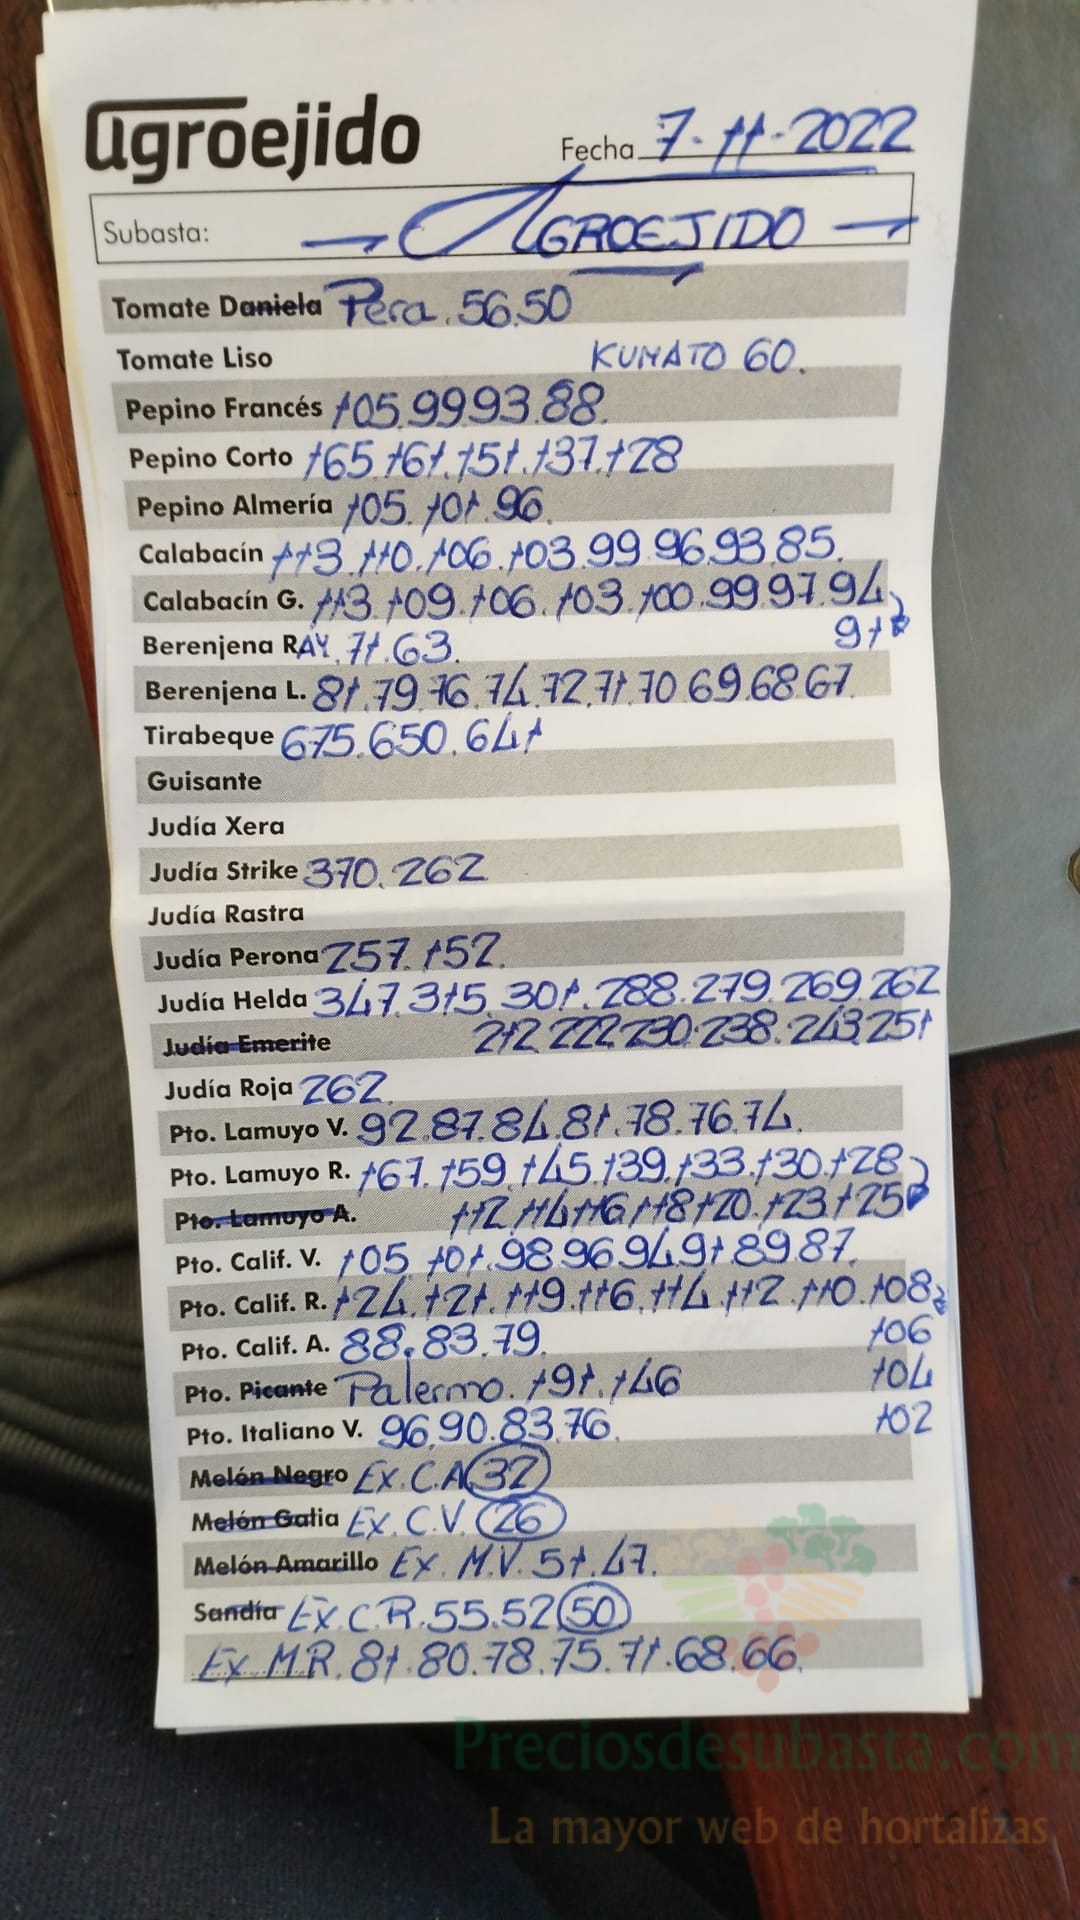 agroejido
Fecha 7-11-2022
Subasta: AGROEJIDO
Tomate Daniela Pera. 56.50
Tomate Liso KUMATO 60.
Pepino Francés 105.99.93.88.
Pepino Corto 165.161.151.137.128
Pepino Almería 105.101.96.
Calabacín 113.110.106.103.99.96.93.85.
Calabacín G. 113.109.106.103.100.99.97.94
91
Berenjena RAY. 71.63.
Berenjena L. 81.79.76.74.72.71.70.69.68.67.
Tirabeque 675.650.641
Guisante
Judía Xera
Judía Strike 370.262
Judía Rastra
Judía Perona 257.152.
Judía Helda 347.315.301.288.279.269.262
Judía Emerite 212.222.230.238.243.251
Judía Roja 262.
Pto. Lamuyo V. 92.87.84.81.78.76.74.
Pto. Lamuyo R. 167.159.145.139.133.130.128
Pto. Lamuyo A. 112.114.116.118.120.123.125
Pto. Calif. V. 105.101.98.96.94.91.89.87.
Pto. Calif. R. 124.121.119.116.114.112.110.108
Pto. Calif. A. 88.83.79. 106
Pto. Picante Palermo. 191.146 104
Pto. Italiano V. 96.90.83.76. 102
Melón Negro Ex.C.A 32
Melón Galia Ex.C.V. 26
Melón Amarillo Ex. M.V. 51.47.
Sandía Ex.C.R.55.52 50
Ex M.R. 81.80.78.75.71.68.66.
Preciosdesubasta.com
La mayor web de hortalizas